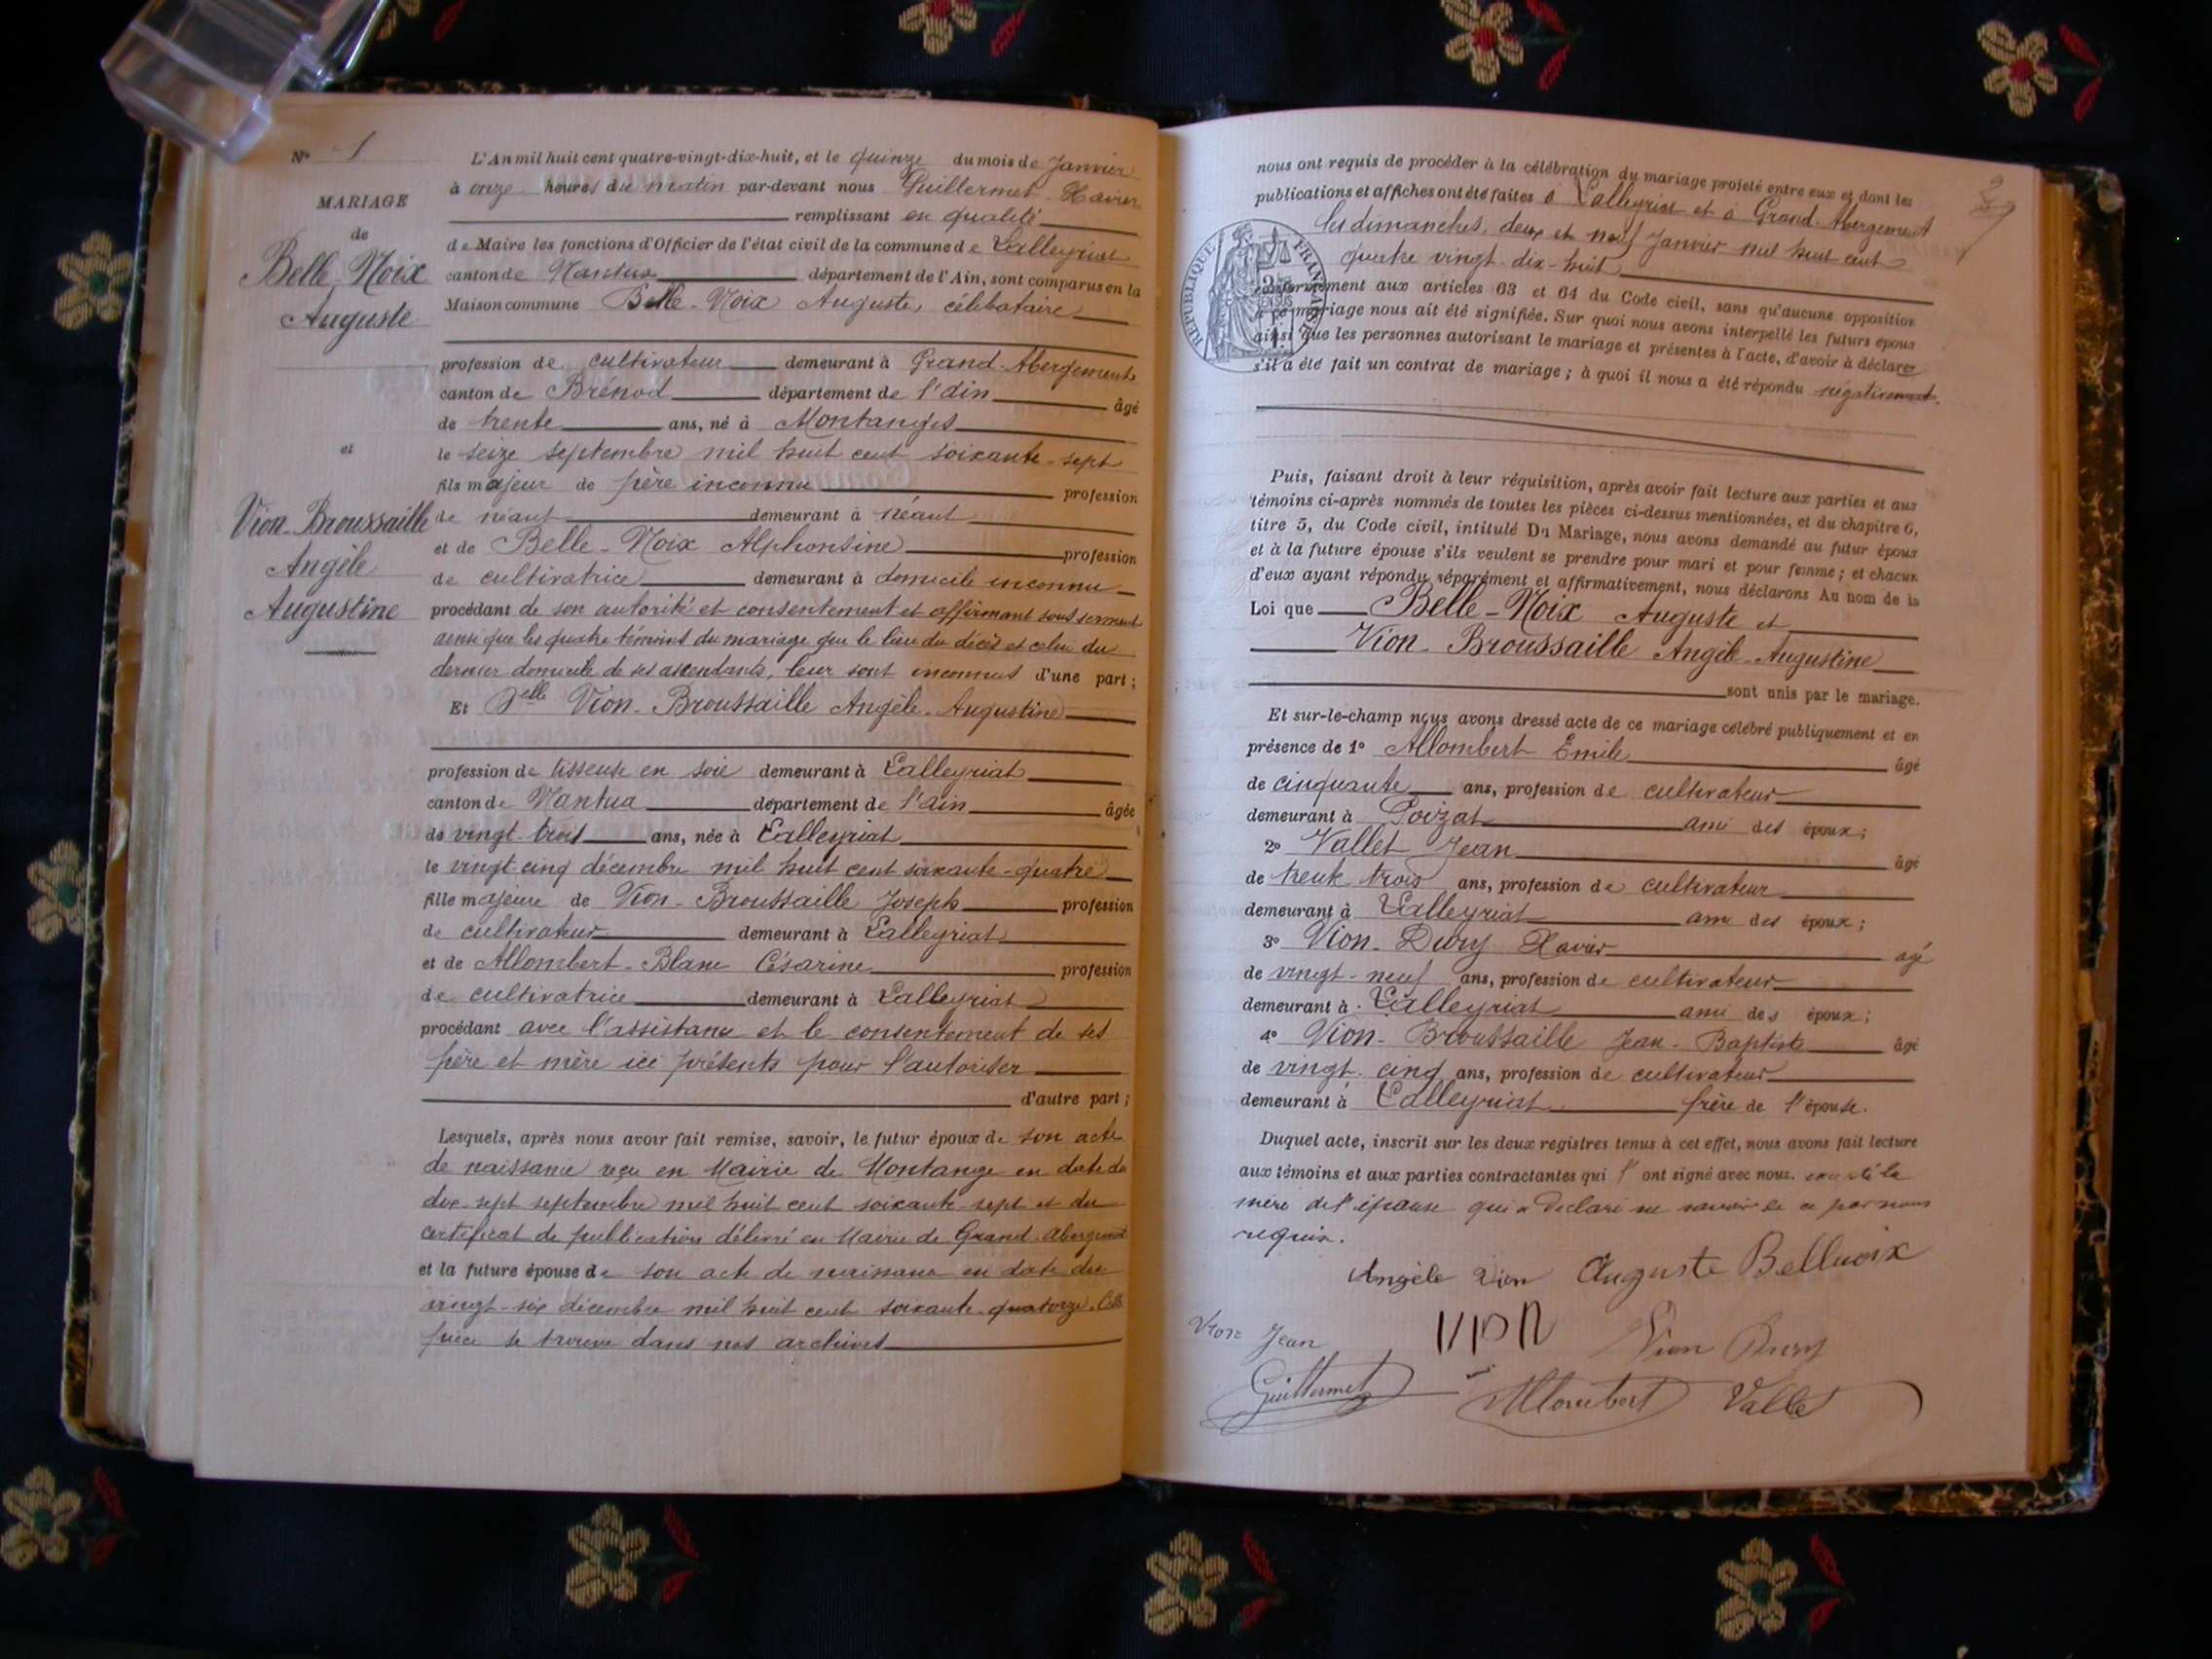 N° 1
MARIAGE
de
Belle-Noix
Auguste
et
Vion-Broussaille
Angèle
Augustine
L'An mil huit cent quatre-vingt-dix-huit, et le quinze du mois de Janvier
à onze heures du matin par-devant nous Guillermet Xavier
remplissant en qualité
de Maire les fonctions d'Officier de l'état civil de la commune de Lalleyriat
canton de Nantua département de l'Ain, sont comparus en la
Maison commune Belle-Noix Auguste, célibataire
profession de cultivateur demeurant à Grand-Abergement
canton de Brénod département de l'Ain âgé
de trente ans, né à Montanges
le seize septembre mil huit cent soixante-sept
fils majeur de père inconnu profession
de néant demeurant à néant
et de Belle-Noix Alphonsine profession
de cultivatrice demeurant à domicile inconnu
procédant de son autorité et consentement et affirmant sous serment
ainsi que les quatre témoins du mariage que le lieu du décès et celui du
dernier domicile de ses ascendants, leur sont inconnus d'une part;
Et Delle Vion-Broussaille Angèle-Augustine
profession de tisseuse en soie demeurant à Lalleyriat
canton de Nantua département de l'Ain âgée
de vingt-trois ans, née à Lalleyriat
le vingt-cinq décembre mil huit cent soixante-quatre
fille majeure de Vion-Broussaille Joseph profession
de cultivateur demeurant à Lalleyriat
et de Allombert-Blanc Césarine profession
de cultivatrice demeurant à Lalleyriat
procédant avec l'assistance et le consentement de ses
père et mère ici présents pour l'autoriser
d'autre part;
Lesquels, après nous avoir fait remise, savoir, le futur époux de son acte
de naissance reçu en Mairie de Montange en date du
dix-sept septembre mil huit cent soixante-sept et du
certificat de publication délivré en Mairie de Grand-Abergement
et la future épouse de son acte de naissance en date du
vingt-six décembre mil huit cent soixante-quatorze. Cette
pièce se trouve dans nos archives
2
nous ont requis de procéder à la célébration du mariage projeté entre eux et dont les
publications et affiches ont été faites à Lalleyriat et à Grand-Abergement
les dimanches, deux et neuf Janvier mil huit cent
quatre vingt-dix-huit
RÉPUBLIQUE FRANÇAISE
conformément aux articles 63 et 64 du Code civil, sans qu'aucune opposition
à ce mariage nous ait été signifiée. Sur quoi nous avons interpellé les futurs époux
ainsi que les personnes autorisant le mariage et présentes à l'acte, d'avoir à déclarer
s'il a été fait un contrat de mariage; à quoi il nous a été répondu négativement.
Puis, faisant droit à leur réquisition, après avoir fait lecture aux parties et aux
témoins ci-après nommés de toutes les pièces ci-dessus mentionnées, et du chapitre 6,
titre 5, du Code civil, intitulé Du Mariage, nous avons demandé au futur époux
et à la future épouse s'ils veulent se prendre pour mari et pour femme; et chacun
d'eux ayant répondu séparément et affirmativement, nous déclarons Au nom de la
Loi que Belle-Noix Auguste et
Vion-Broussaille Angèle-Augustine
sont unis par le mariage.
Et sur-le-champ nous avons dressé acte de ce mariage célébré publiquement et en
présence de 1° Allombert Emile âgé
de cinquante ans, profession de cultivateur
demeurant à Poizat ami des époux;
2° Vallet Jean âgé
de trente trois ans, profession de cultivateur
demeurant à Lalleyriat ami des époux;
3° Vion-Dury Xavier agé
de vingt-neuf ans, profession de cultivateur
demeurant à Lalleyriat ami des époux;
4° Vion-Broussaille Jean-Baptiste âgé
de vingt-cinq ans, profession de cultivateur
demeurant à Lalleyriat frère de l'épouse.
Duquel acte, inscrit sur les deux registres tenus à cet effet, nous avons fait lecture
aux témoins et aux parties contractantes qui l'ont signé avec nous. excepté la
mère de l'épouse qui a déclaré ne savoir de ce par nous
requise.
Angèle Vion Auguste Bellnoix
Vion Jean VION Vion Dury
Guillermet Allombert Vallet